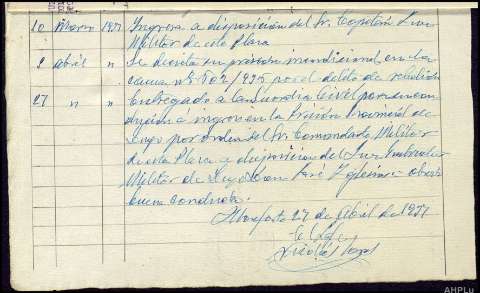 10 Marzo 1937 Ingresa a disposición del Sr. Capitán Juez
Militar de esta Plaza
9 abril " Se decreta su prisión incondicional en la
causa nº 502/936 por el delito de rebelión
27 " " Entregado a la Guardia Civil para su con
ducción e ingreso en la Prisión Provincial de
Lugo por orden del Sr. Comandante Militar
de esta Plaza y disposición del Juez Instructor
Militar de Lugo Don José Iglesias. observó
buena conducta.
Monforte 27 de abril de 1937
El Jefe
AHPLu